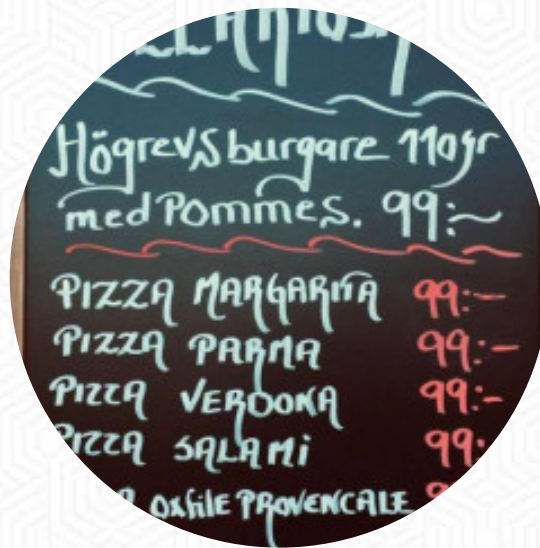 Högrevsburgare 110gr
med Pommes. 99:~
PIZZA MARGARITA 99:-
PIZZA PARMA 99:-
PIZZA VERDOKA 99:-
PIZZA SALAMi 99:
oxfile PROVENCALE